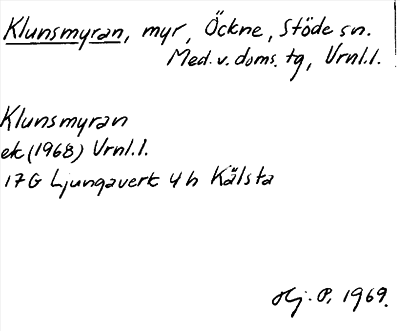 Klunsmyran, myr, Öckne, Stöde sn.
Med. v. doms. tg, Vrnl.l.
Klunsmyran
ek (1968) Vrnl.l.
17G Ljungaverk 4h Kälsta
Hj. P. 1969.